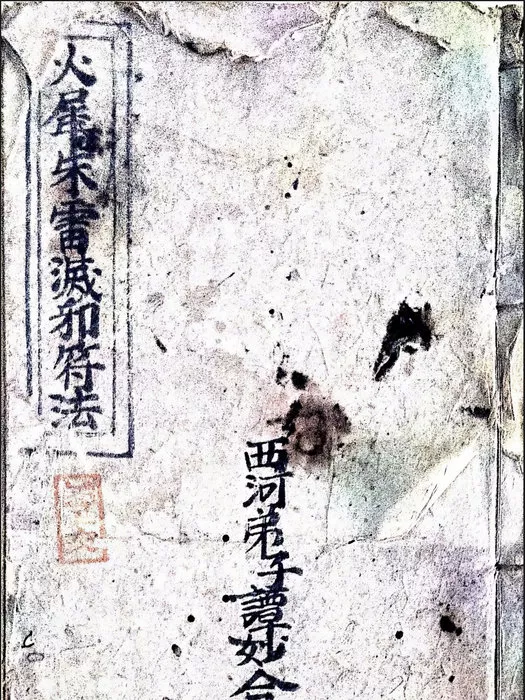 火犀朱雷滅邪符法
西河弟子譚妙合